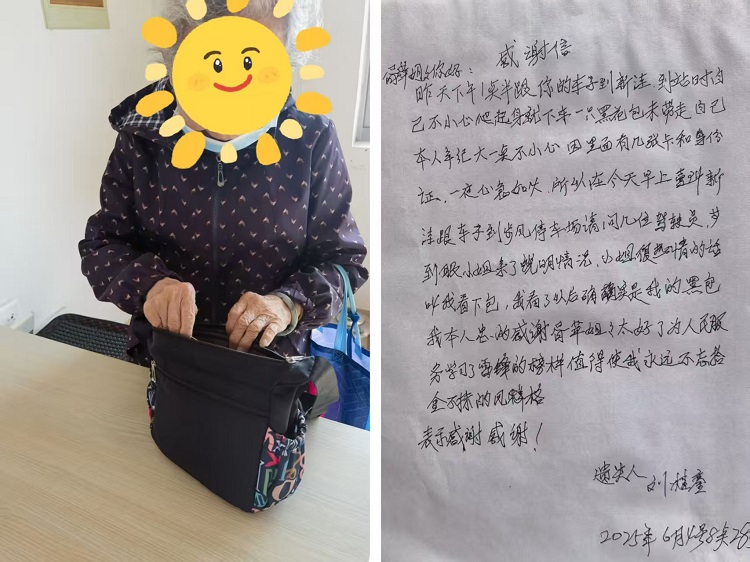 感谢信
姐你好:
昨天下午1点半跟你的车子到新洼,到站时自
己不小心爬起身就下车一只黑花包未带走自己
本人年纪大一点不小心因里面有几张卡和身份
证,一夜心急如火所以在今天早上重到新
洼跟车子到停车场请问几位驾驶员,
到眼小姐来了说明情况,小姐很热情的话
叫我看下包,我看了以后确实是我的黑包
我本人忠的感谢姐太好了为人民服
务学习了雷锋的榜样值得使我永远不忘
金不抹的风格
表示感谢感谢!
遗失人 刘
2025年6月4号8点28